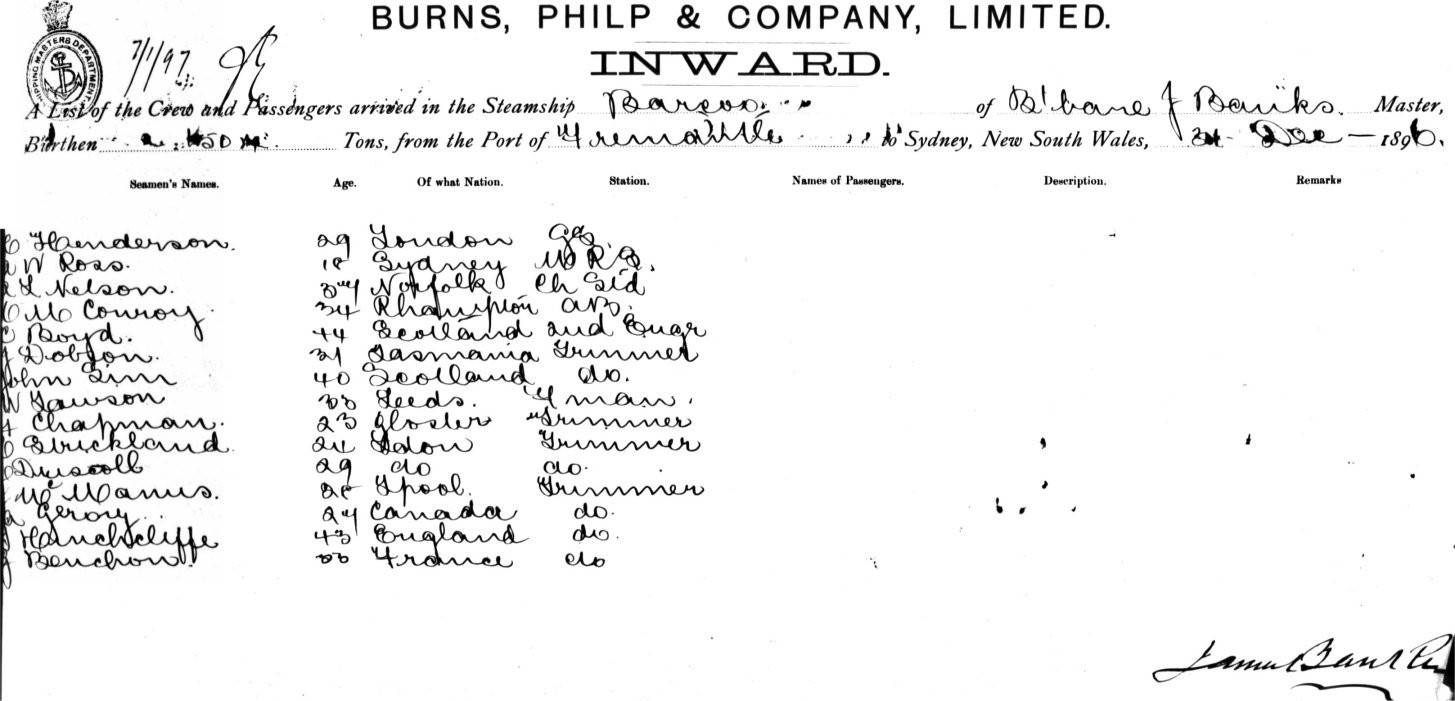 BURNS, PHILP & COMPANY, LIMITED.
INWARD.
SHIPPING MASTERS DEPARTMENT
7/1/97
A List of the Crew and Passengers arrived in the Steamship Barcoo of B'bane J Banks. Master,
Burthen Tons, from the Port of Fremantle to Sydney, New South Wales, 31 Dec — 1896.
Seamen's Names. Age. Of what Nation. Station. Names of Passengers. Description. Remarks
Henderson. 29 London
W Ross. 18 Sydney
L Nelson. 37 Norfolk Ch Std
McConroy. 34 Rhampton AB.
Boyd. 44 Scotland 2nd Engr
J Dobson. 31 Tasmania Trimmer
John Sim 40 Scotland do.
W Lawson 33 Leeds. Fman.
Chapman. 23 Gloster Trimmer
Strickland. 24 Ldon Trimmer
Driscoll 29 do do.
McManus. 28 Lpool. Trimmer
27 Canada do.
J Hinchcliffe 43 England do.
J Benchon. 33 France do
James Banks